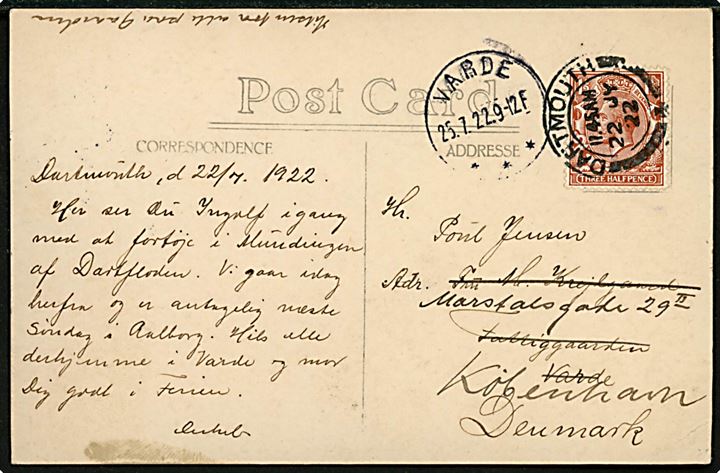 Hilsen fra alle paa Gaarden
Post Card
CORRESPONDENCE
ADDRESSE
VARDE
25.7.22.9-12F
DARTMOUTH
11.45AM
22 JY
22
THREE HALFPENCE
Dartmouth, d 22/7 1922.
Her ser Du Ingolf igang
med at fortøje i Mundingen
af Dartfloden. Vi gaar idag
herfra og er antagelig næste
Søndag i Aalborg. Hils alle
derhjemme i Varde og mor
Dig godt i Ferien.
Hr.
Poul Jensen
Adr. Fru M. Krejlgaard
Marstalsgade 29 II
København
Varde
Denmark